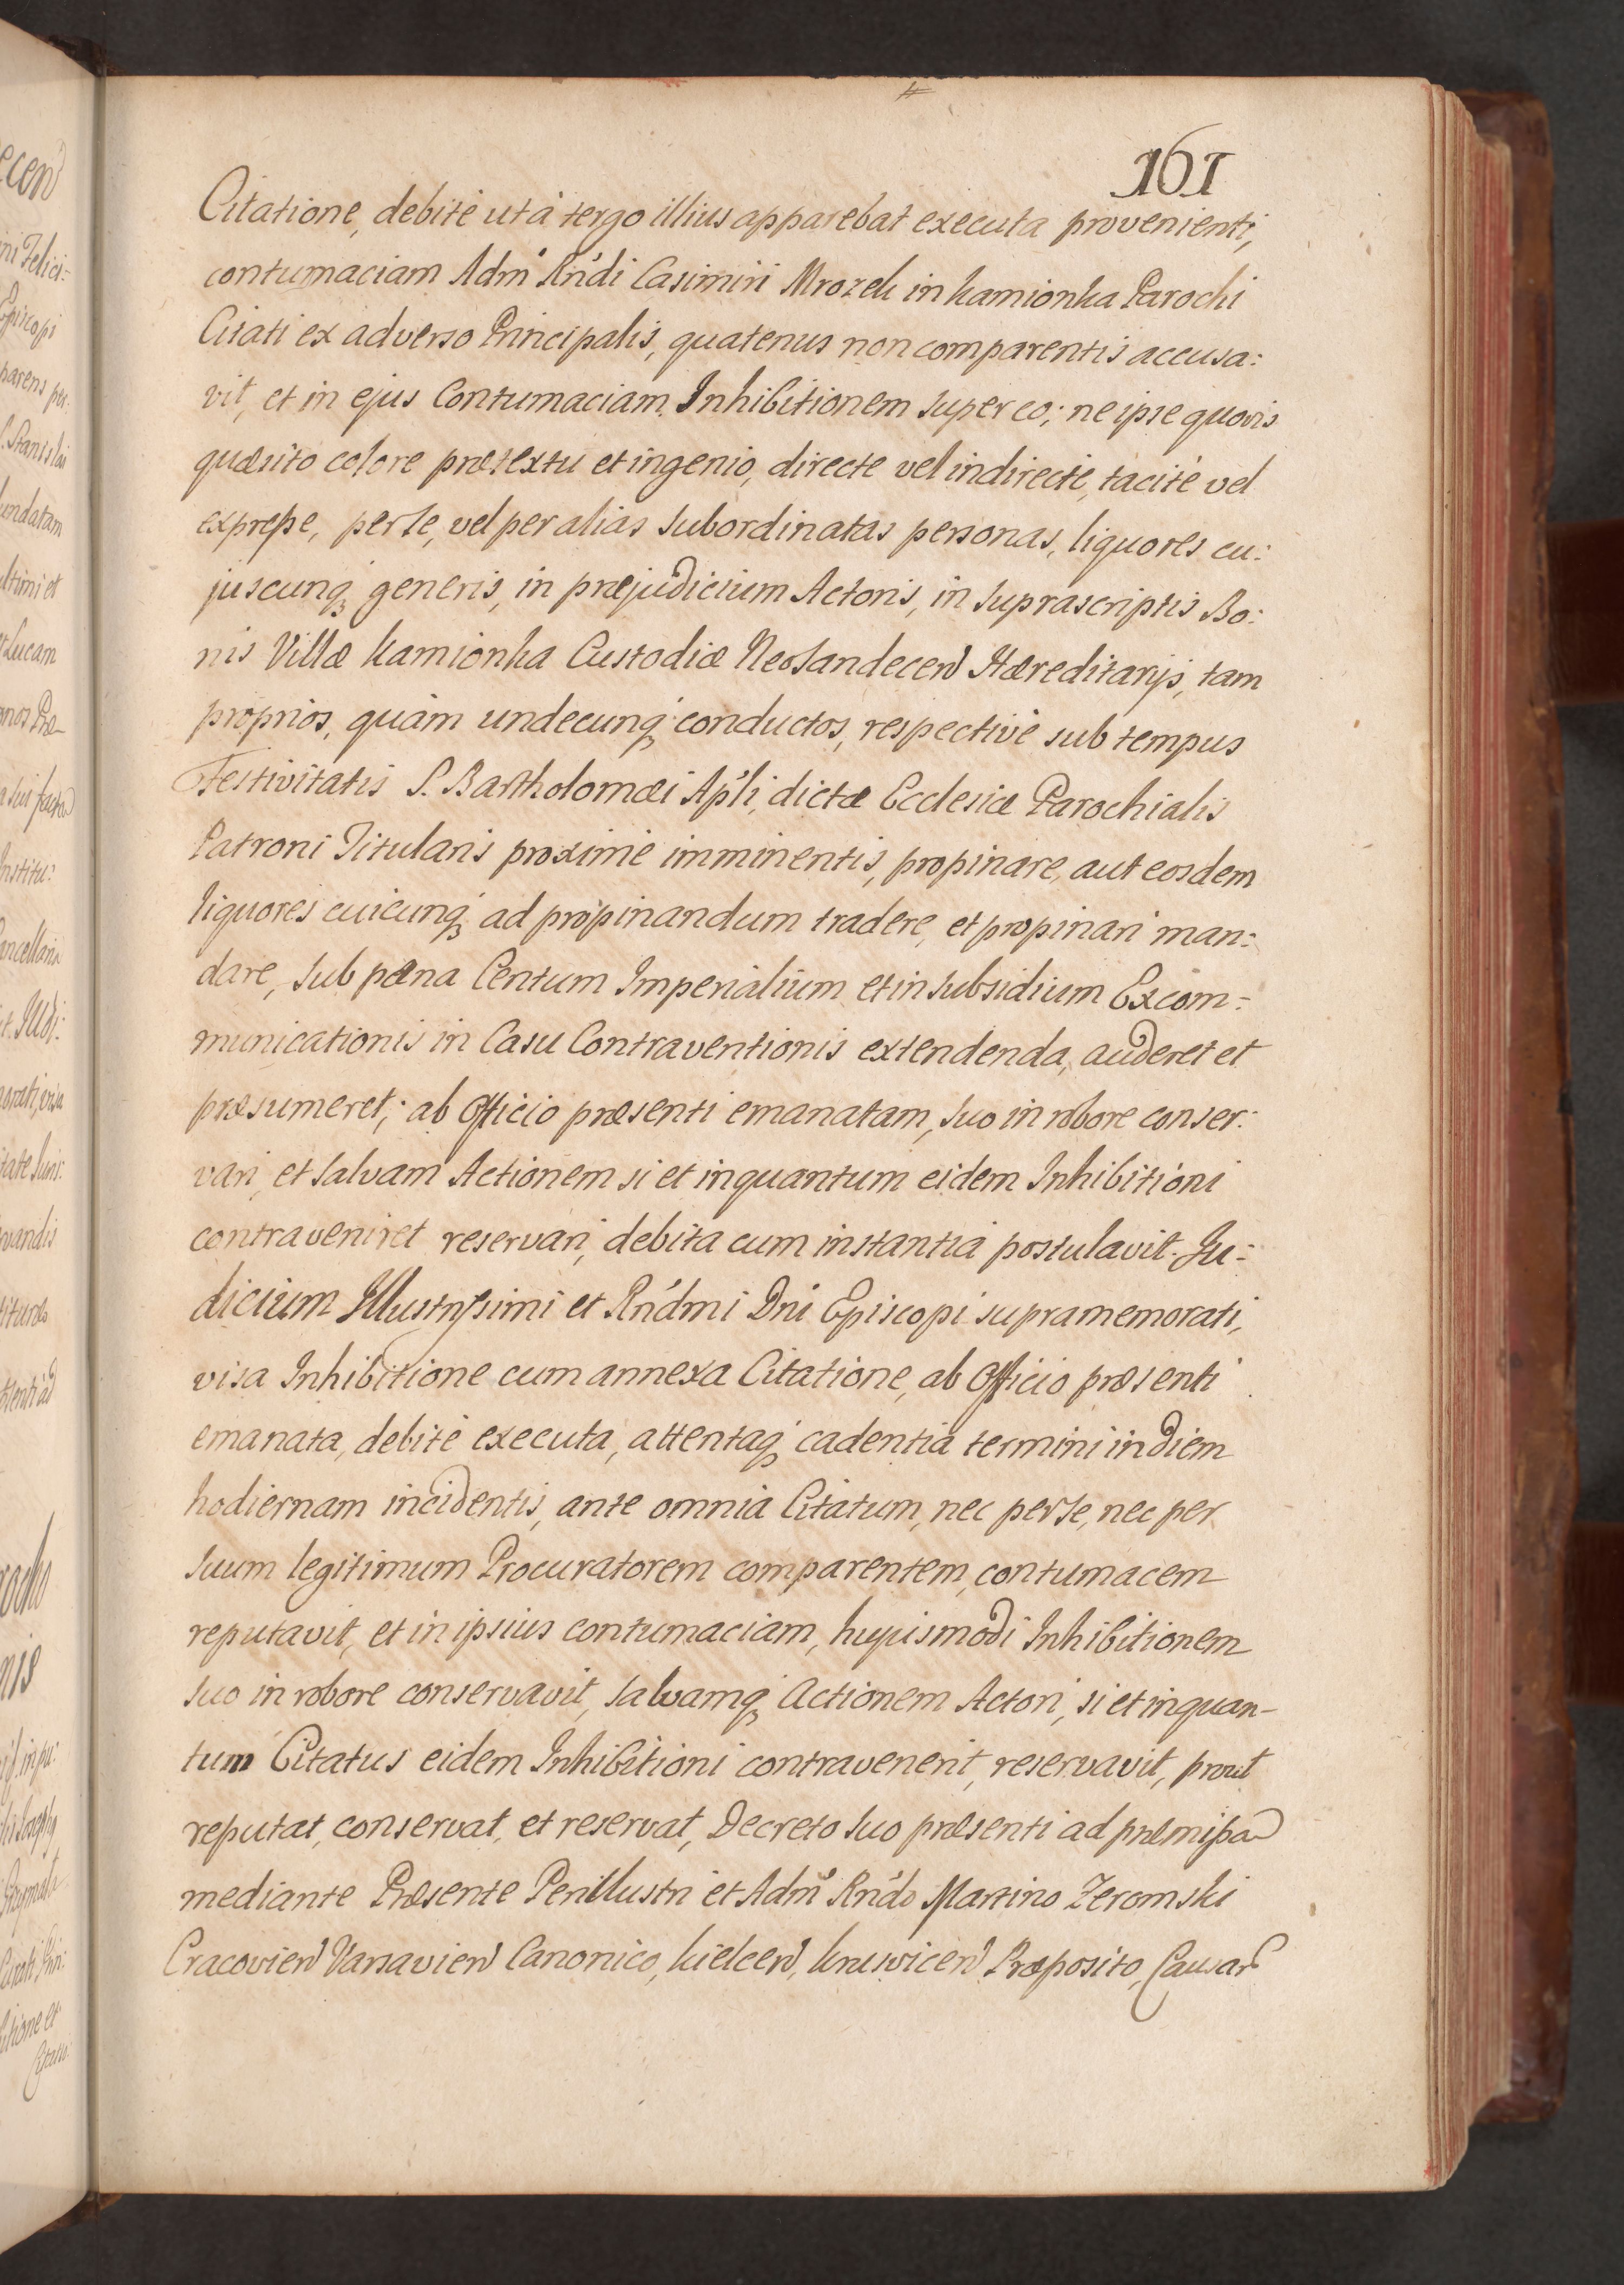 161
Citatione, debitè ut à tergo illius apparebat executa provenienti,
contumaciam Adm̃ Rñdi Casimiri Mrozek in Kamionka Parochi
Citati ex adverso Principalis, quatenus non comparentis accusa:
vit, et in ejus Contumaciam Inhibitionem super eo; ne ipse quovis
quæsito colore prætextu et ingenio, directe vel indirectè, tacitè vel
expresse, per se, vel per alias subordinatas personas, liquores cu:
juscunq; generis, in præjudicium Actoris, in suprascriptis Bo:
nis Villæ Kamionka Custodiæ Neosandecen̄ Hæreditarijs, tam
proprios, quàm undecunq; conductos, respectivè sub tempus
Festivitatis S. Bartholomæi Ap̃li, dictæ Ecclesiæ Parochialis
Patroni Titularis proximè imminentis, propinare, aut eosdem
liquores cuicunq; ad propinandum tradere, et propinari man:
dare, sub pæna Centum Imperialium et in subsidium Excom:
municationis in Casu Contraventionis extendenda, auderet et
præsumeret; ab Officio præsenti emanatam, suo in robore conser:
vari, et salvam Actionem si et inquantum eidem Inhibitioni
contraveniret reservari, debita cum instantia postulavit. Ju:
dicium Illustrissimi et Rñdmi Dni Episcopi supramemorati,
visa Inhibitione cum annexa Citatione, ab Officio præsenti
emanata, debitè executa, attentaq; cadentia termini in diem
hodiernam incidentis, ante omnia Citatum, nec per se, nec per
suum legitimum Procuratorem comparentem, contumacem
reputavit, et in ipsius contumaciam, hujusmodi Inhibitionem
suo in robore conservavit, salvamq; Actionem Actori, si et inquan-
tum Citatus eidem Inhibitioni contravenerit, reservavit, prout
reputat, conservat, et reservat, Decreto suo præsenti ad præmissa
mediante Præsente Perillustri et Adm̃ Rñdo Martino Zeromski
Cracovien̄ Varsavien̄ Canonico, Kielcen̄, Krusvicen̄ Præposito, Causar̃